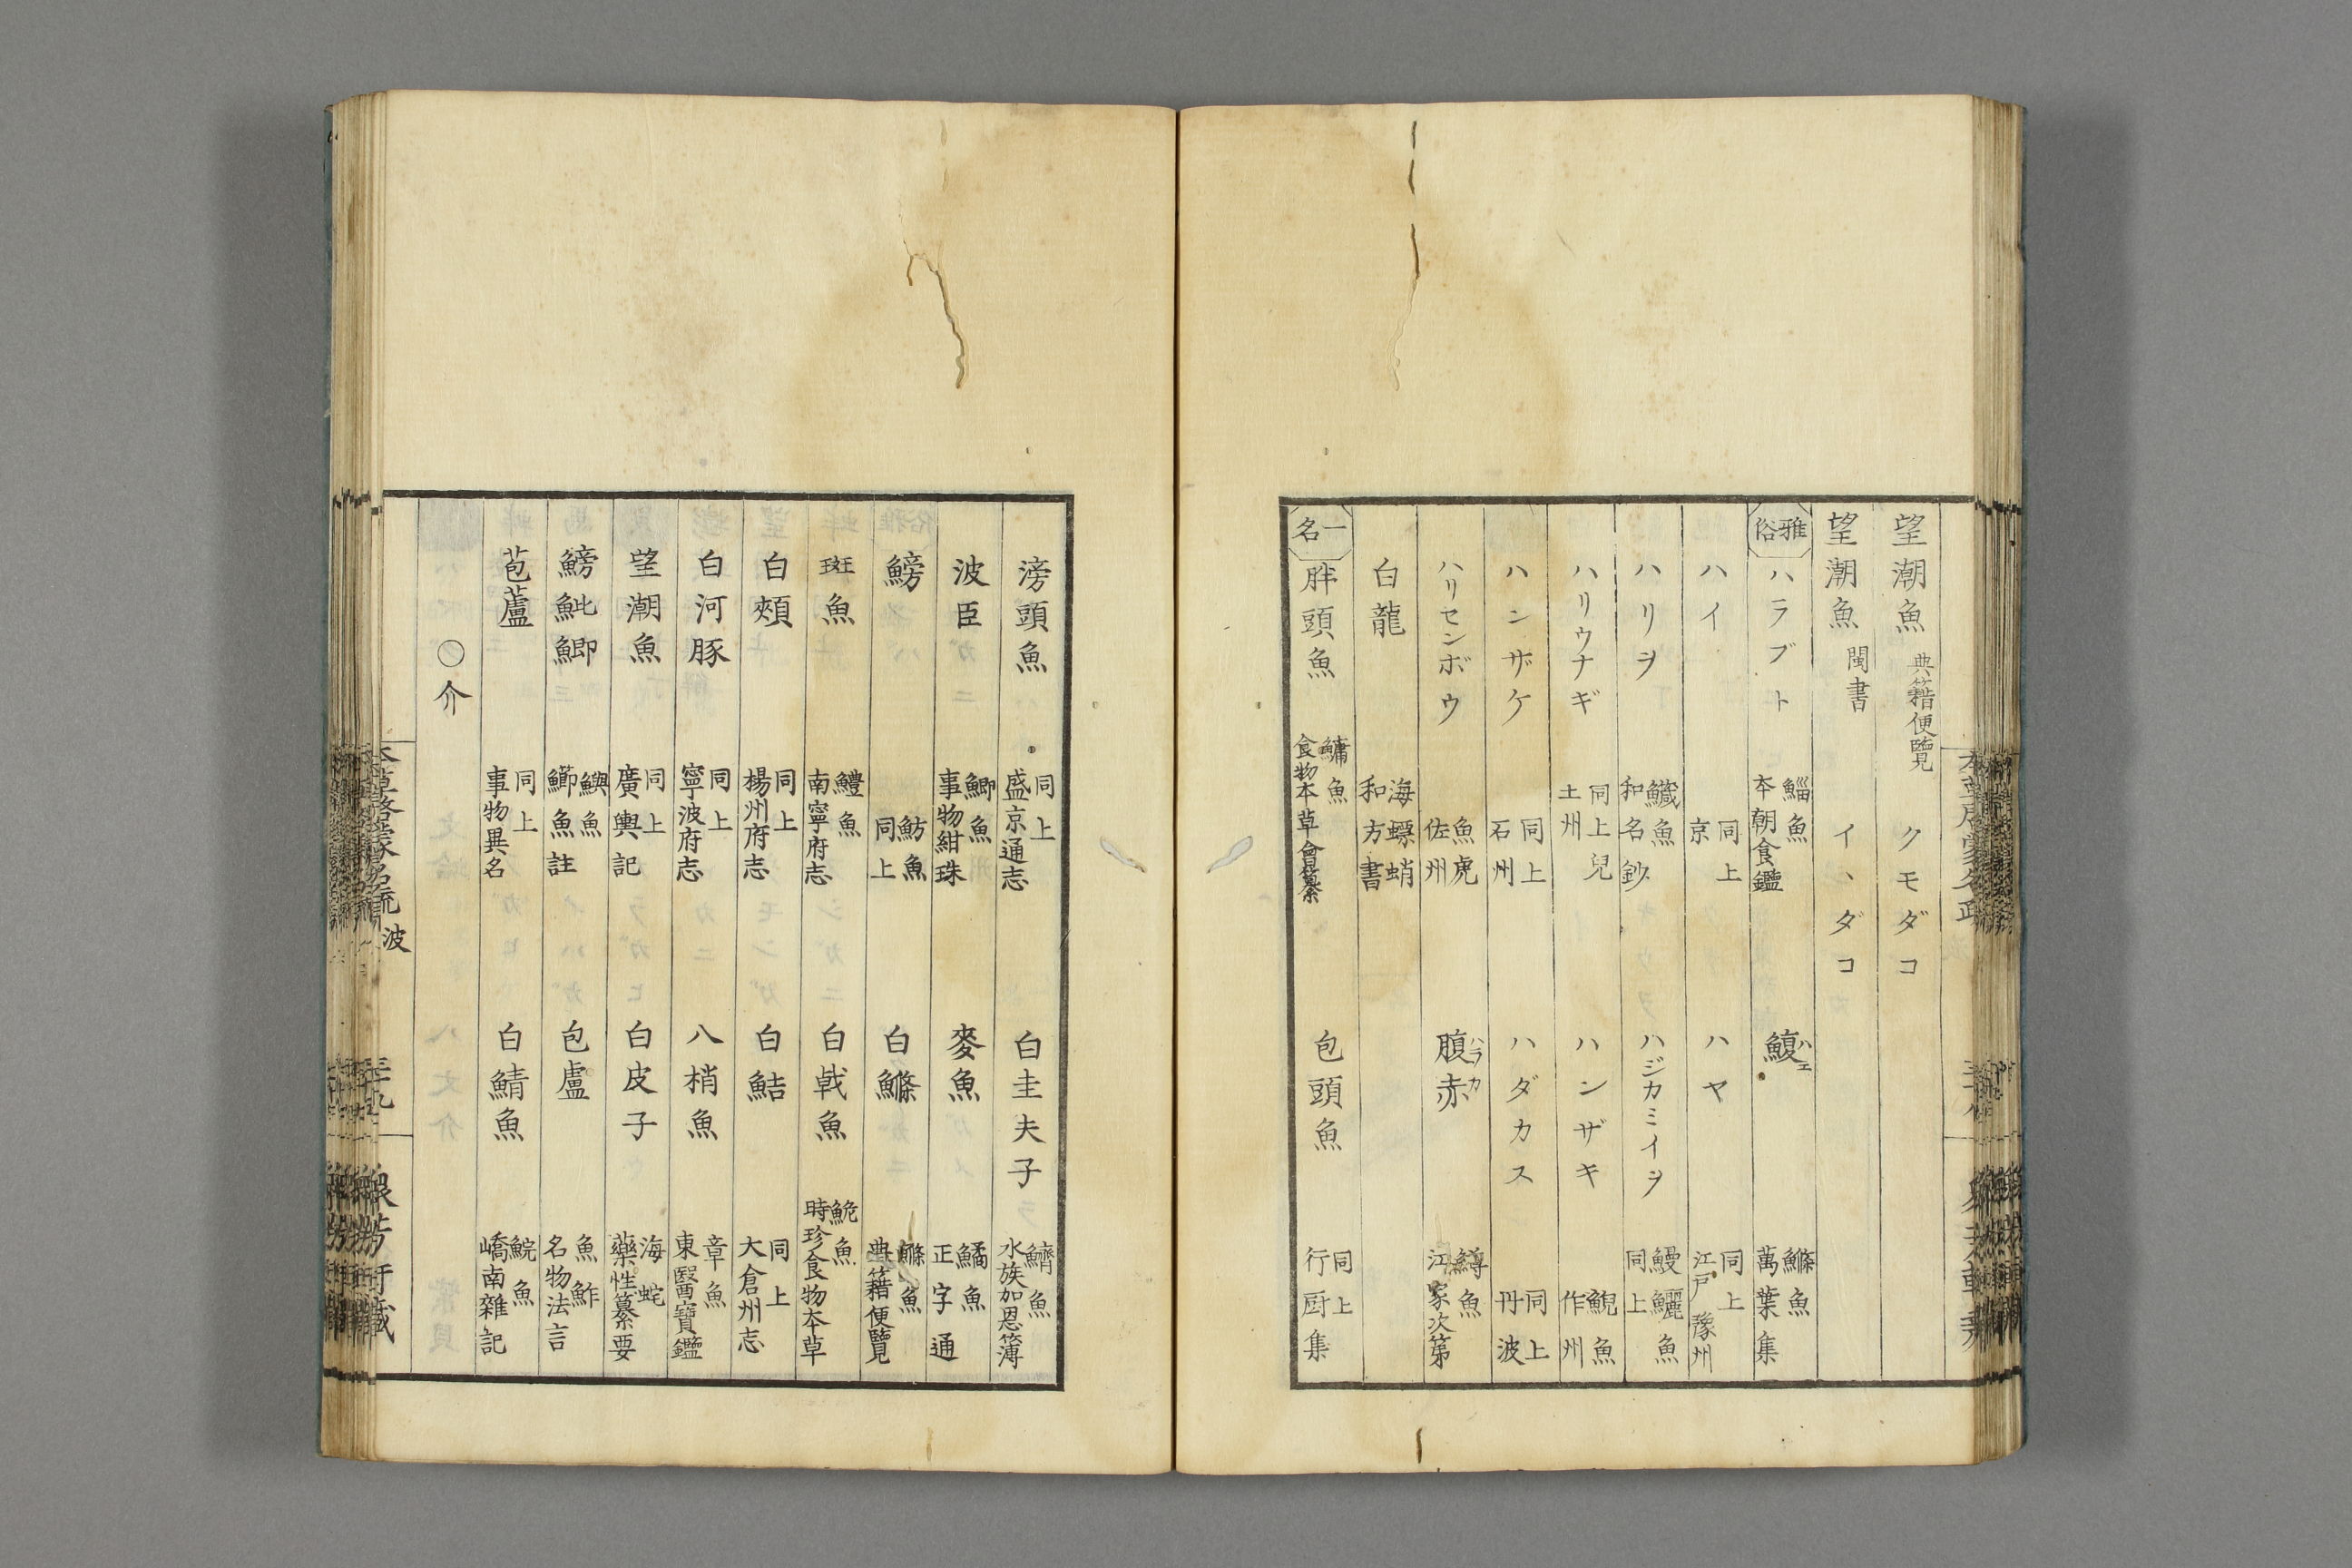 望潮魚 典籍便覽 クモダコ
望潮魚 閩書 イヽダコ
雅俗 ハラブト 鯔魚 本朝食鑑 鰒 ハエ 鰷魚 萬葉集
ハイ 同上 京 ハヤ 同上 江戸 豫州
ハリヲ 鱵魚 和名鈔 ハジカミイヲ 鰻鱺魚 同上
ハリウナギ 同上兒 土州 ハンザキ 鯢魚 作州
ハンザケ 同上 石州 ハダカス 同上 丹波
ハリセンボウ 魚虎 佐州 腹赤 ハラカ 鱒魚 江家次第
白龍 海螵蛸 和方書
一名 胖頭魚 鱅魚 食物本草會纂 包頭魚 同上 行厨集
滂頭魚 同上 盛京通志 白圭夫子 鱭魚 水族加恩簿
波臣 鯽魚 事物紺珠 麥魚 鱊魚 正字通
鰟 魴魚 同上 白鰷 鰷魚 典籍便覽
斑魚 鱧魚 南寧府志 白戟魚 鮠魚 時珍食物本草
白頰 同上 楊州府志 白鮚 同上 大倉州志
白河豚 同上 寧波府志 八梢魚 章魚 東醫寶鑑
望潮魚 同上 廣輿記 白皮子 海蛇 藥性纂要
鰟魮鯽 鱮魚 鯽魚註 包盧 魚鮓 名物法言
苞蘆 同上 事物異名 白鯖魚 鯇魚 嶠南雜記
○介
本草啓蒙名疏 波 三十九